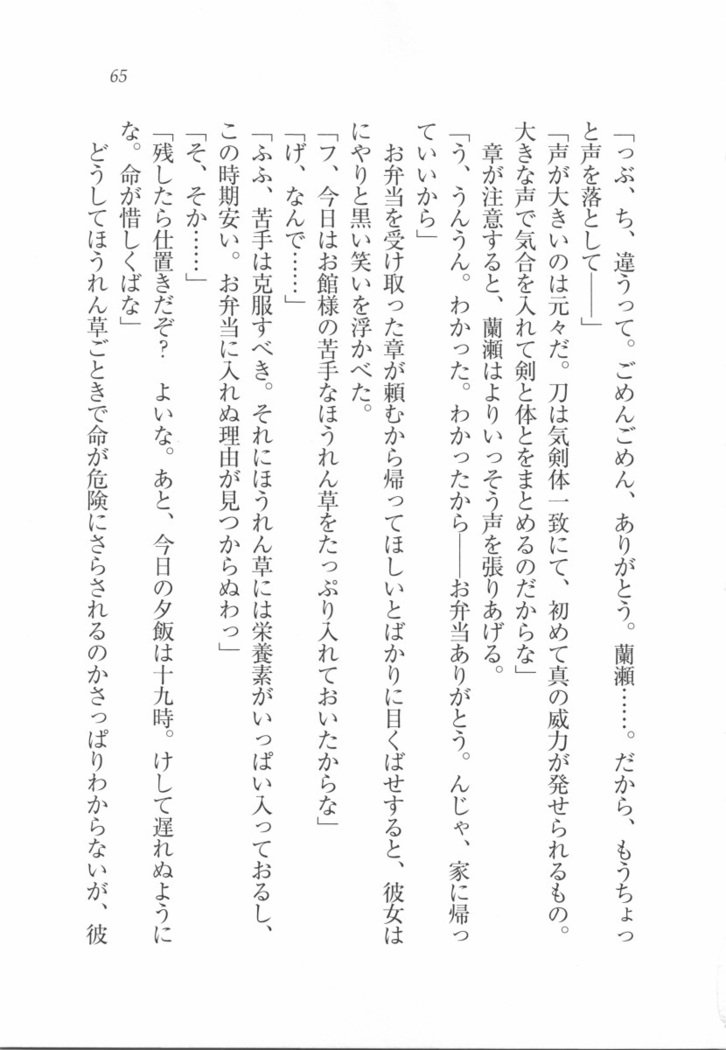 65
「っぷ、ち、違うって。ごめんごめん、ありがとう。蘭瀬……。だから、もうちょっ
と声を落として――」
「声が大きいのは元々だ。刀は気剣体一致にて、初めて真の威力が発せられるもの。
大きな声で気合を入れて剣と体とをまとめるのだからな」
章が注意すると、蘭瀬はよりいっそう声を張りあげる。
「う、うんうん。わかった。わかったから――お弁当ありがとう。んじゃ、家に帰っ
ていいから」
お弁当を受け取った章が頼むから帰ってほしいとばかりに目くばせすると、彼女は
にやりと黒い笑いを浮かべた。
「フ、今日はお館様の苦手なほうれん草をたっぷり入れておいたからな」
「げ、なんで……」
「ふふ、苦手は克服すべき。それにほうれん草には栄養素がいっぱい入っておるし、
この時期安い。お弁当に入れぬ理由が見つからぬわっ」
「そ、そか……」
「残したら仕置きだぞ？　よいな。あと、今日の夕飯は十九時。けして遅れぬように
な。命が惜しくばな」
どうしてほうれん草ごときで命が危険にさらされるのかさっぱりわからないが、彼